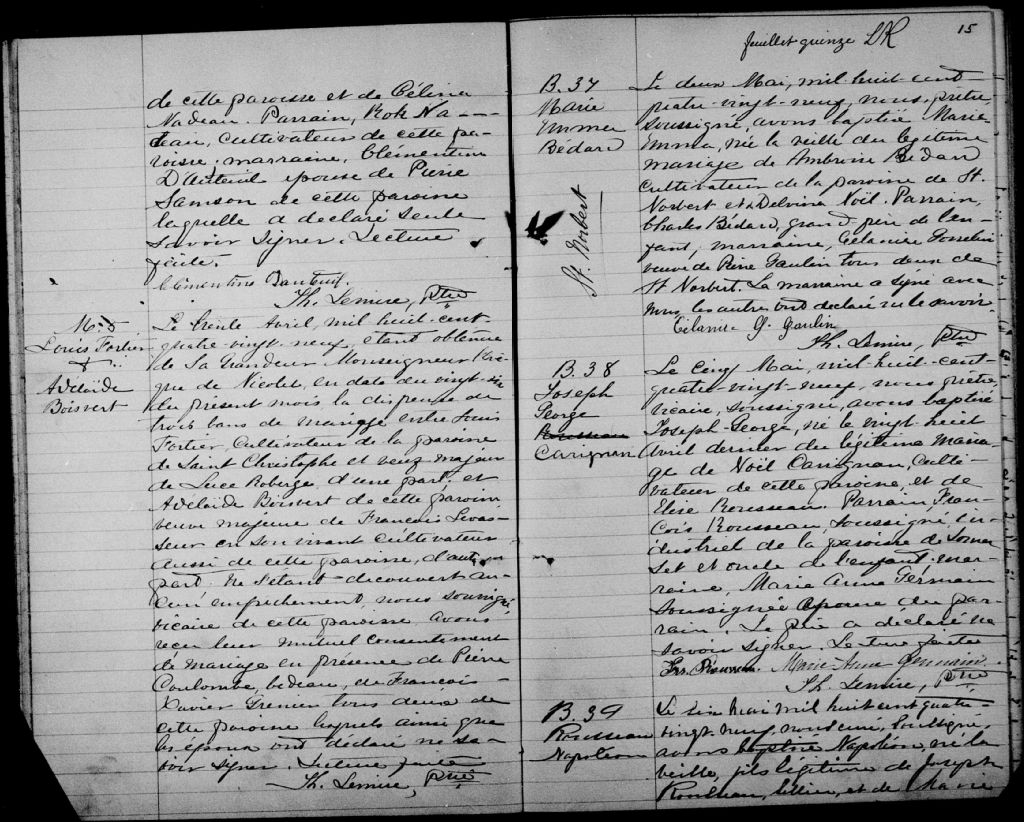 de cette paroisse et de Célina
Nadeau Parrain, Rok Na-
deau, Cultivateur de cette pa-
roisse; marraine, Clémentine
D'Auteuil épouse de Pierre
Samson de cette paroisse
laquelle a déclaré seule
savoir signer. Lecture
faite.
Clémentine Dauteuil
Th. Lemire, Ptre
M. 5
Louis Fortier
&
Adélaïde
Boisvert
Le trente Avril, mil huit-cent-
quatre-vingt-neuf, étant obtenue
de Sa Grandeur Monseigneur l'évê-
que de Nicolet, en date du vingt-six
du présent mois la dispense de
trois bans de mariage entre Louis
Fortier, Cultivateur de la paroisse
de Saint Christophe et veuf majeur
de Luce Roberge, d'une part; et
Adélaïde Boisvert de cette paroisse
veuve majeure de François Levas-
seur en son vivant cultivateur
aussi de cette paroisse, d'autre
part; ne s'étant découvert au-
cun empêchement, nous soussigné,
vicaire de cette paroisse, avons
reçu leur mutuel consentement
de mariage en présence de Pierre
Coulombe, bedeau, de François-
Xavier Grenier tous deux de
cette paroisse lesquels ainsi que
les époux ont déclaré ne sa-
voir signer. Lecture faite
Th. Lemire, Ptre
feuillet quinze LR
15
B. 37
Marie
Emma
Bédard
St. Norbert
Le deux Mai, mil huit-cent-
quatre-vingt-neuf, nous, prêtre,
soussigné, avons baptisé Marie
Emma, née la veille du légitime
mariage de Ambroise Bédard
cultivateur de la paroisse de St.
Norbert et de Delvina Noël. Parrain,
Charles Bédard, grand père de l'en-
fant; marraine, Célanire Gosselin
veuve de Pierre Gaulin tous deux de
St Norbert. La marraine a signé avec
nous, les autres ont déclaré ne le savoir.
Célanire G. Gaulin
Th. Lemire, Ptre
B. 38
Joseph
George
Rousseau
Carignan
Le Cinq Mai, mil huit-cent-
quatre-vingt-neuf, nous prêtre,
vicaire, soussigné, avons baptisé
Joseph-George, né le vingt-huit
Avril dernier du légitime maria-
ge de Noël Carignan, Culti-
vateur de cette paroisse, et de
Elise Rousseau. Parrain, Fran-
çois Rousseau, soussigné, in-
dustriel de la paroisse de Somer-
set et oncle de l'enfant; mar-
raine, Marie Anne Germain
soussignée épouse du par-
rain. Le père a déclaré ne
savoir signer. Lecture faite
Frs. Rousseau. Marie Anne Germain
Th. Lemire, Ptre
B. 39
Rousseau
Napoléon
Le six Mai mil huit cent quatre-
vingt-neuf, nous curé, soussigné,
avons baptisé Napoléon, né la
veille, fils légitime de Joseph
Rousseau, sellier, et de Marie